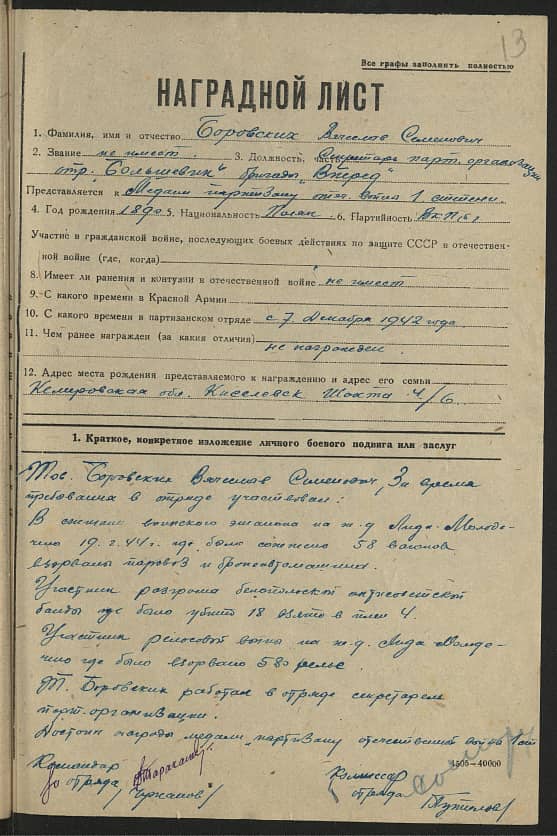 13
Все графы заполнить полностью
НАГРАДНОЙ ЛИСТ
1. Фамилия, имя и отчество Боровских Вячеслав Семенович
2. Звание не имеет 3. Должность, часть Секретарь парт. организации
отр. "Большевик" бригады "Вперед"
Представляется к Медали партизану отеч. война 1 степени.
4. Год рождения 1890 5. Национальность Поляк 6. Партийность ВКП(б)
Участие в гражданской войне, последующих боевых действиях по защите СССР в отечествен-
ной войне (где, когда)
8. Имеет ли ранения и контузии в отечественной войне не имеет
9. С какого времени в Красной Армии
10. С какого времени в партизанском отряде с 7 Декабря 1942 года
11. Чем ранее награжден (за какия отличия)
не награжден.
12. Адрес места рождения представляемого к награждению и адрес его семьи
Кемировская обл. Киселевск Шахта 4/6
1. Краткое, конкретное изложение личного боевого подвига или заслуг
Тов. Боровских Вячеслав Семенович, За время
пребывания в отряде участвовал:
В воинского эшалона на ж.д Лида-Молоде-
чно 19 г. 44 г. где было сожжено 58 вагонов
взорваны паровоз и бронеавтомашина.
Участник разгрома белопольской антисоветской
банды где было убито 18 взято в плен 4.
Участник релосовой войны на ж.д. Лида Молоде-
чно где было взорвано 580 рельс.
Т. Боровских работал в отряде секретарем
парт. организации.
Достоин награды медали "партизану отечественной война 1 ст
4505—40000
Командир
отряда
Комиссар
отряда